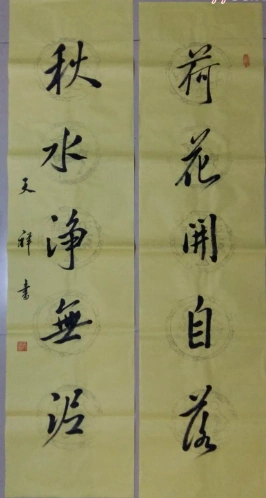 荷花開自落
秋水淨無泥
天祥書